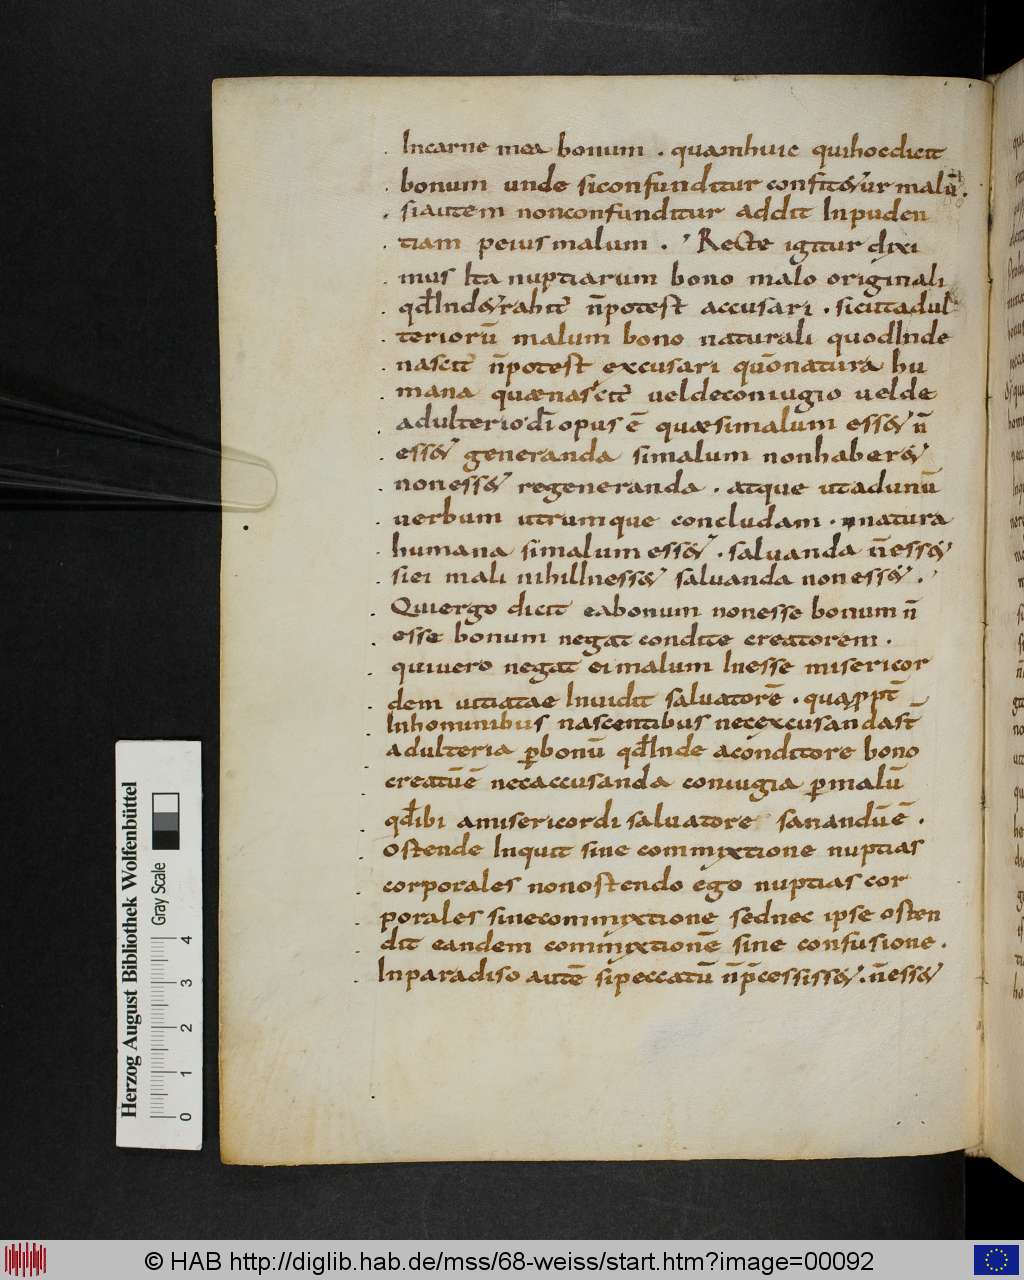 Incarne mea bonum . quamhuic quihocdicit
bonum unde siconfunditur confit&ur malū .
siautem nonconfunditur addit Inpuden
tiam peiusmalum . Recte igitur dixi
mus Ita nuptiarum bono malo originali
qđInd&rahit n̄potest accusari . sicutadul
teriorū malum bono naturali quodInde
nascit n̄potest excusari quōnatura hu
mana quænascit ueldeconiugio uelde
adulterio dī opus ē quæsimalum ess& n̄
ess& generanda simalum nonhaber&
noness& regeneranda . atque utadunū
uerbum utrumque concludam . natura
humana simalum ess& . saluanda n̄ess&
siei mali nihilIness& saluanda noness& .
Quiergo dicit eabonum nonesse bonum n̄
esse bonum negat condite creatorem .
quiuero negat eimalum Inesse misericor
dem uitiatae Inuidit saluatorē . quappt̄
Inhominibus nascentibus necexcusandast̄
adulteria ꝑbonū qđInde aconditore bono
creatūē necaccusanda coniugia ꝑmalū
qđibi amisericordi saluatore sanandūē .
Ostende Inquit sine commixtione nuptias
corporales nonostendo ego nuptias cor
porales sinecommixtione sednec ipse osten
dit eandem commixtionē sine confusione .
Inparadiso autē sipeccatū n̄p̄cessiss& . n̄ess&
Herzog August Bibliothek Wolfenbüttel
Gray Scale
0 1 2 3 4
© HAB http://diglib.hab.de/mss/68-weiss/start.htm?image=00092